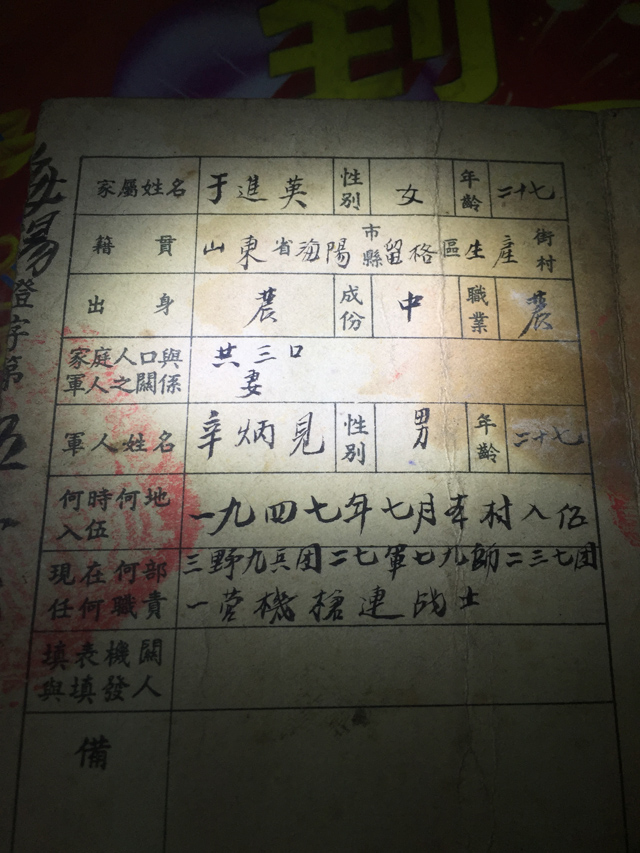 家屬姓名 于進英 性別 女 年齡 二十七
籍貫 山東省海陽市縣留格區生産街村
出身 農 成份 中 職業 農
家庭人口與 共三口
軍人之關係 妻
軍人姓名 辛炳見 性別 男 年齡 二十七
何時何地入伍 一九四七年七月本村入伍
現在何部 三野九兵团二七軍七九師二三七团
任何職責 一营機槍連战士
填表機關
與填發人
備
海陽證字第